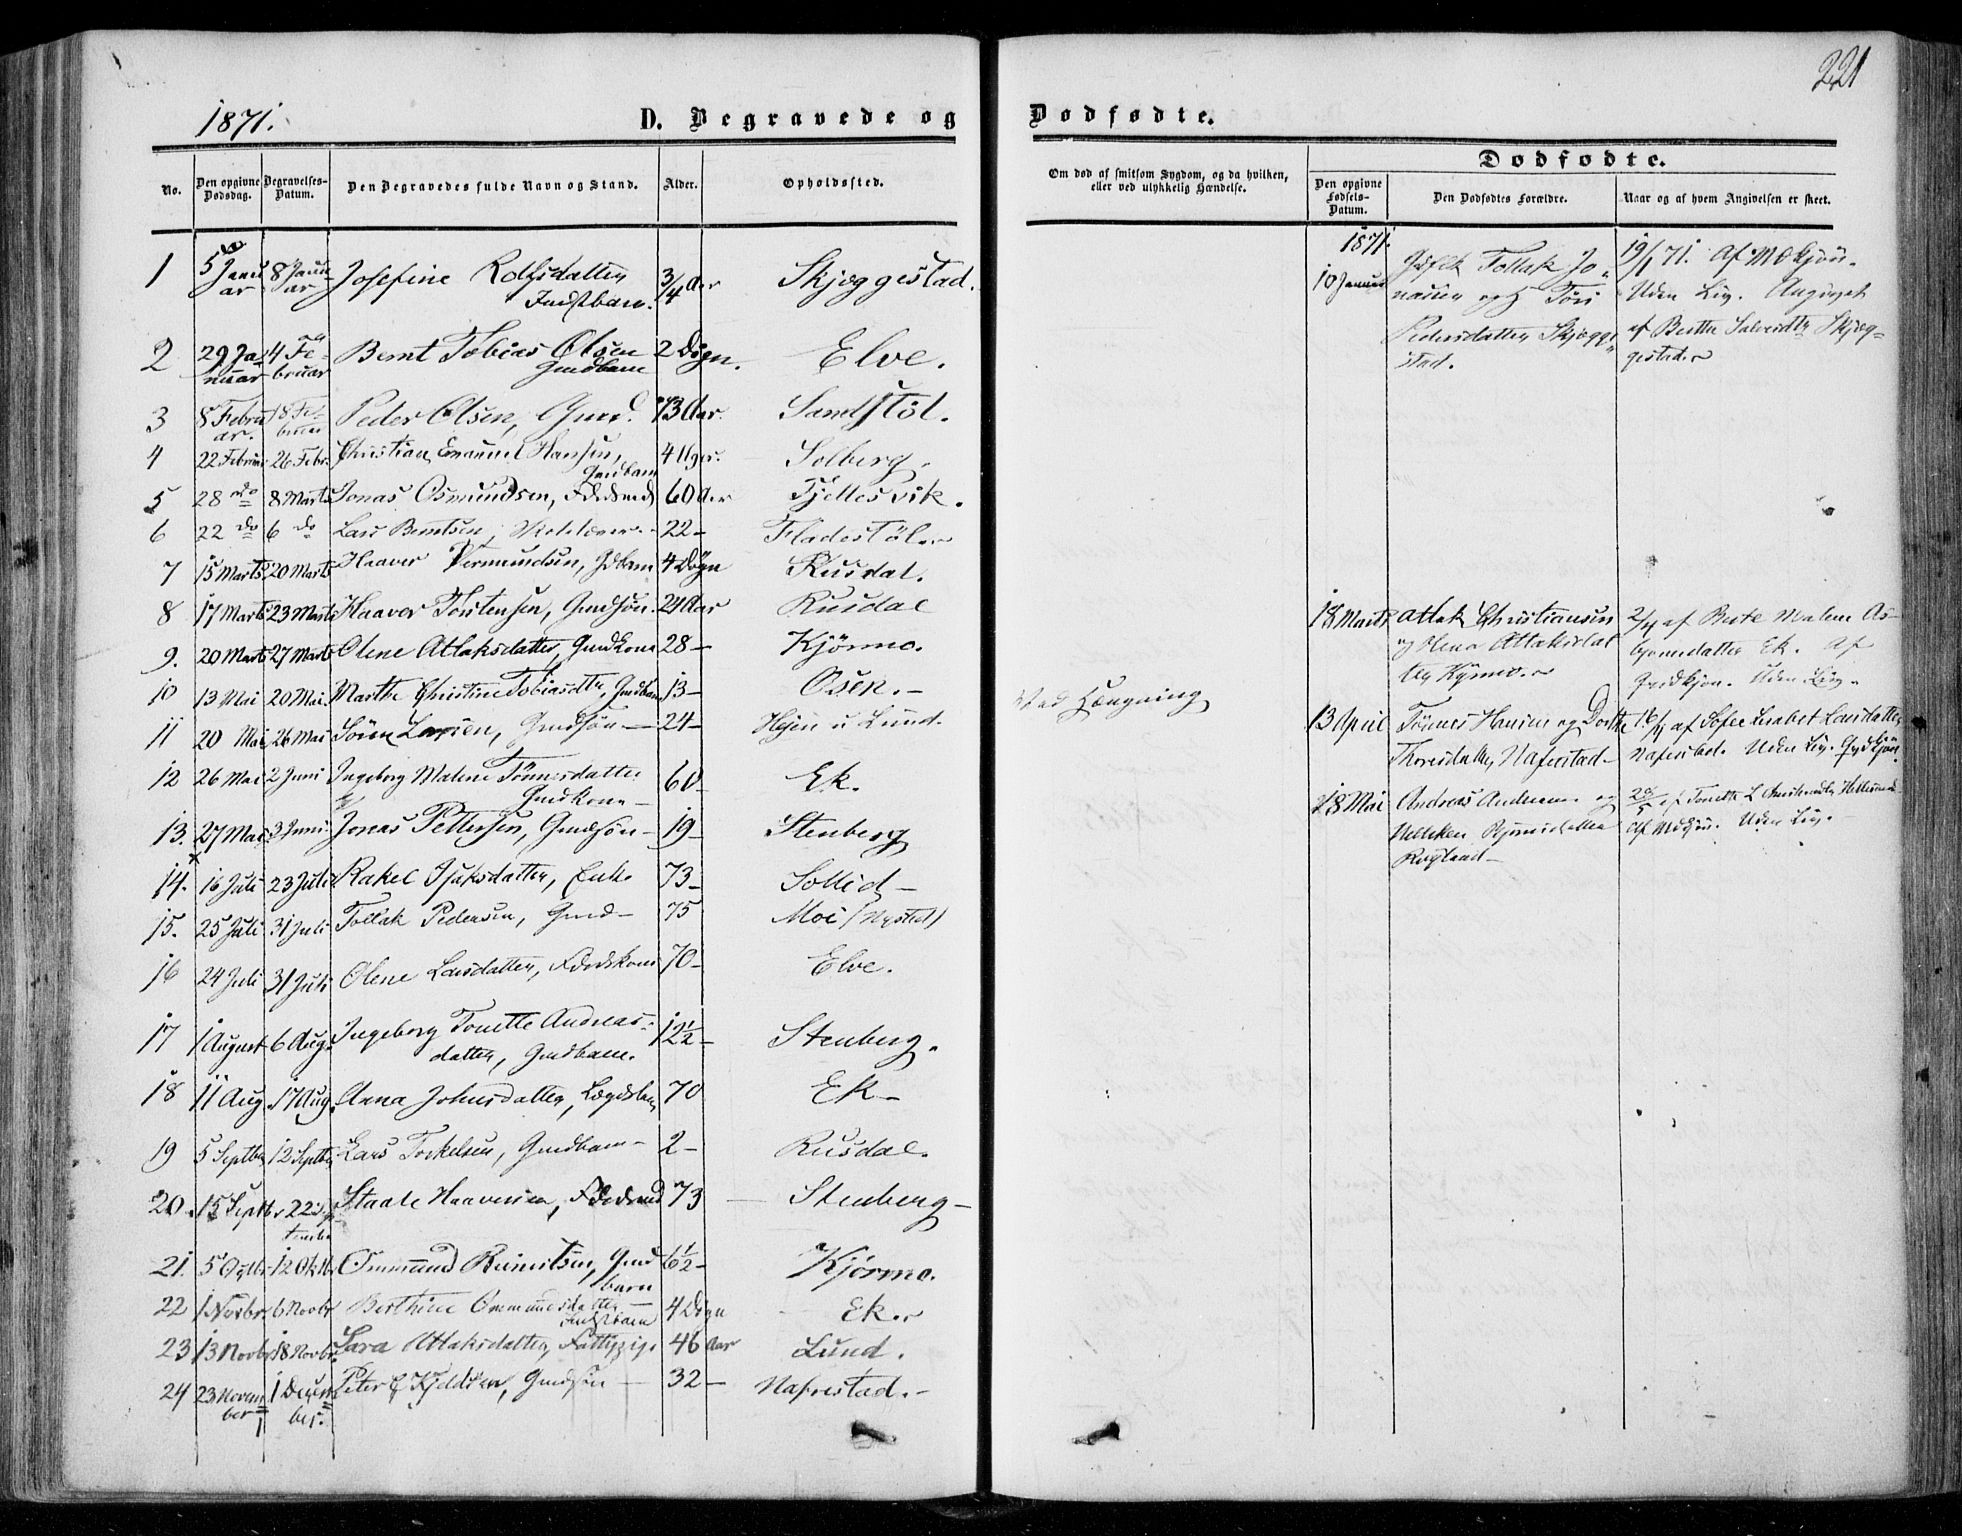 221
1871.
D. Begravede og
Dødfødte.
No.
Den opgivne Dødsdag.
Begravelses-Datum.
Den Begravedes fulde Navn og Stand.
Alder.
Opholdssted.
Om død af smitsom Sygdom, og da hvilken, eller ved ulykkelig Hændelse.
Dødfødte.
Den opgivne Fødsels-Datum.
Den Dødfødtes Forældre.
Naar og af hvem Angivelsen er skeet.
1 5 Januar 8 Januar Josefine Rolfsdatter Indstbarn. 3/4 Aar Skjæggestad.
2 29 Januar 4 Februar Bernt Tobias Olsen Gmdbarn 2 Døgn. Elve.
3 8 Februar. 18 Februar Peder Olsen, Gmd. 73 Aar. Sandstöl.
4 22 Februar 26 Febr. Christian Emanuel Hansen, Gmdbarn 4 Uger. Solberg.
5 28 do 8 Marts Jonas Osmundsen, Fdrdsmd 60 Aar Fjellesvik.
6 22 do 6 do Lars Berntsen, Skolelærer 22 - Fladestöl
7 15 Marts 20 Marts Haaver Vermundsen, Gdbarn 4 Døgn Rusdal.
8 17 Marts 23 Marts Haaver Torstensen, Gmdsøn. 24 Aar Rusdal
9. 20 Marts 27 Marts Olene Atlaksdatter, Gmdkone 28 - Kjörmo.
10 13 Mai 20 Mai. Marthe Christine Tobiasdtr, Gmdbarn 13 - Osen. - Ved Hængning
11 20 Mai 26 Mai Sören Larsen, Gmdsøn - 24 - Hejen u Lund.
12 26 Mai 2 Juni Ingeborg Malene Tönnesdatter Gmdkone - 60 Ek.
13. 27 Mai 3 Juni Jonas Pettersen, Gmdsøn - 19 - Stenberg
14. 16 Juli 23 Juli Rakel Isaksdatter, Enke 73 - Sollid -
15. 25 Juli 31 Juli Tollak Pedersen, Gmd - 75 Moi (Nysted)
16 24 Juli 31 Juli Olene Larsdatter, Fdrdskone 70 - Elve.
17 1 August 6 Aug. Ingeborg Tonette Andreas-datter, Gmdbarn. 12 1/2 - Stenberg.
18 11 Aug 17 Aug. Anna Johnsdatter, Lægdslem 70 Ek -
19 5 Septbr 12 Septbr Lars Torkelsen, Gmdbarn - 2 - Rusdal.
20. 15 Septbr 22 September Staale Haaversen, Fdrdsmd 73 - Stenberg -
21. 5 Octbr. 12 Oktbr Ommund Berntsen, Gmdbarn 6 1/2 - Kjörmo.
22 1 Novbr 6 Novbr Berthine Ommundsdatter Indstbarn 4 Døgn Ek.
23 13 Novbr 18 Novbr. Sara Atlaksdatter, Fattiglem 46 Aar Lund.
24 23 November 1 December. Peter Kjeldsen, Gmdsøn - 32 - Nafrestad. -
1871.
10 Januar Tollak Jonassen og Töri Pedersdatter Skjæggestad.
19/1 71. Af MdKjön. Uden Liv. Angivet af Berthe Salvesdtr Skjæggestad.
18 Marts Atlak Christiansen og Elena Atlaksdatter Kjörmo.
2/4 af Berte Malene Asbjornsdatter Ek. Af Qvidkjön. Uden Liv.
13 April Tönnes Hansen og Dorthe Thoresdatter, Nafrestad -
16/4 af Sofie Lisabet Larsdatter, Nafrestad. Uden Liv. Qvdkjön
18 Mai Andreas Andersen og Rugland -
28/5 af Tonette L. Af MdKjön. Uden Liv. -